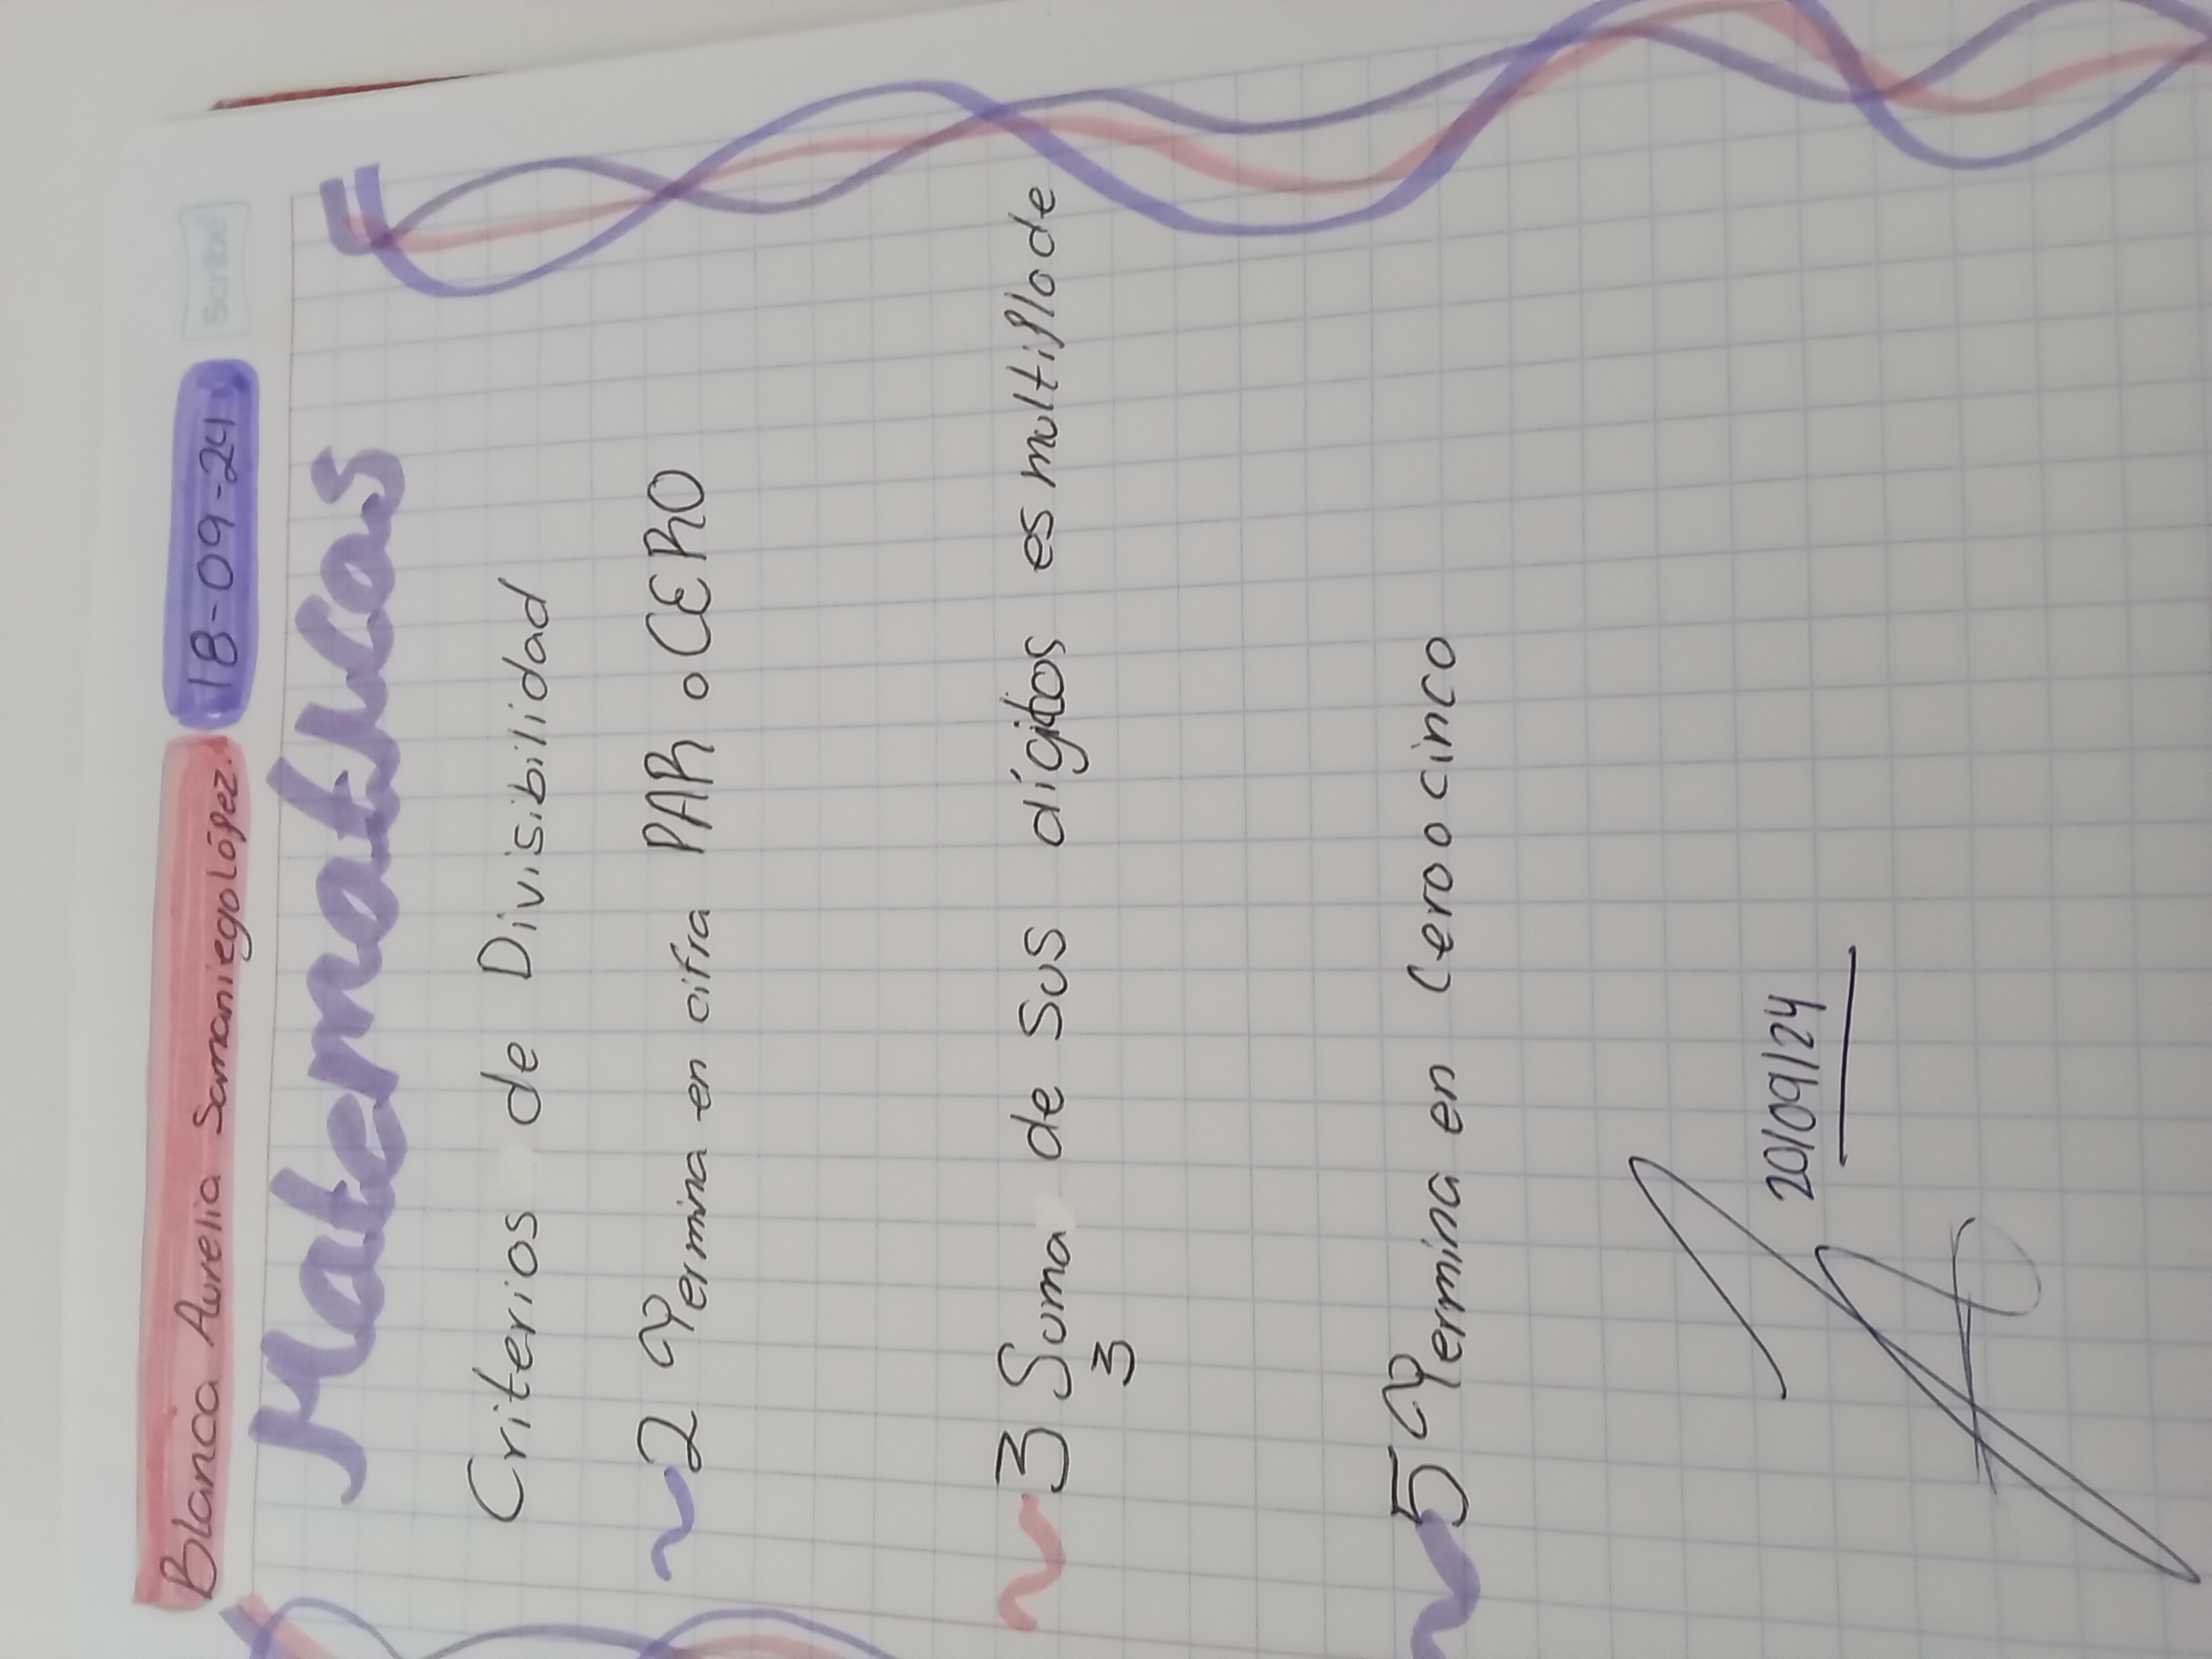 Blanca Aurelia Samaniego López. 18-09-24 Scribe
Matematicas
Criterios de Divisibilidad
2 Termina en cifra PAR o CERO
3 Suma de Sus dígitos es multiplo de
3
5 Termina en Cero o cinco
20/09/24